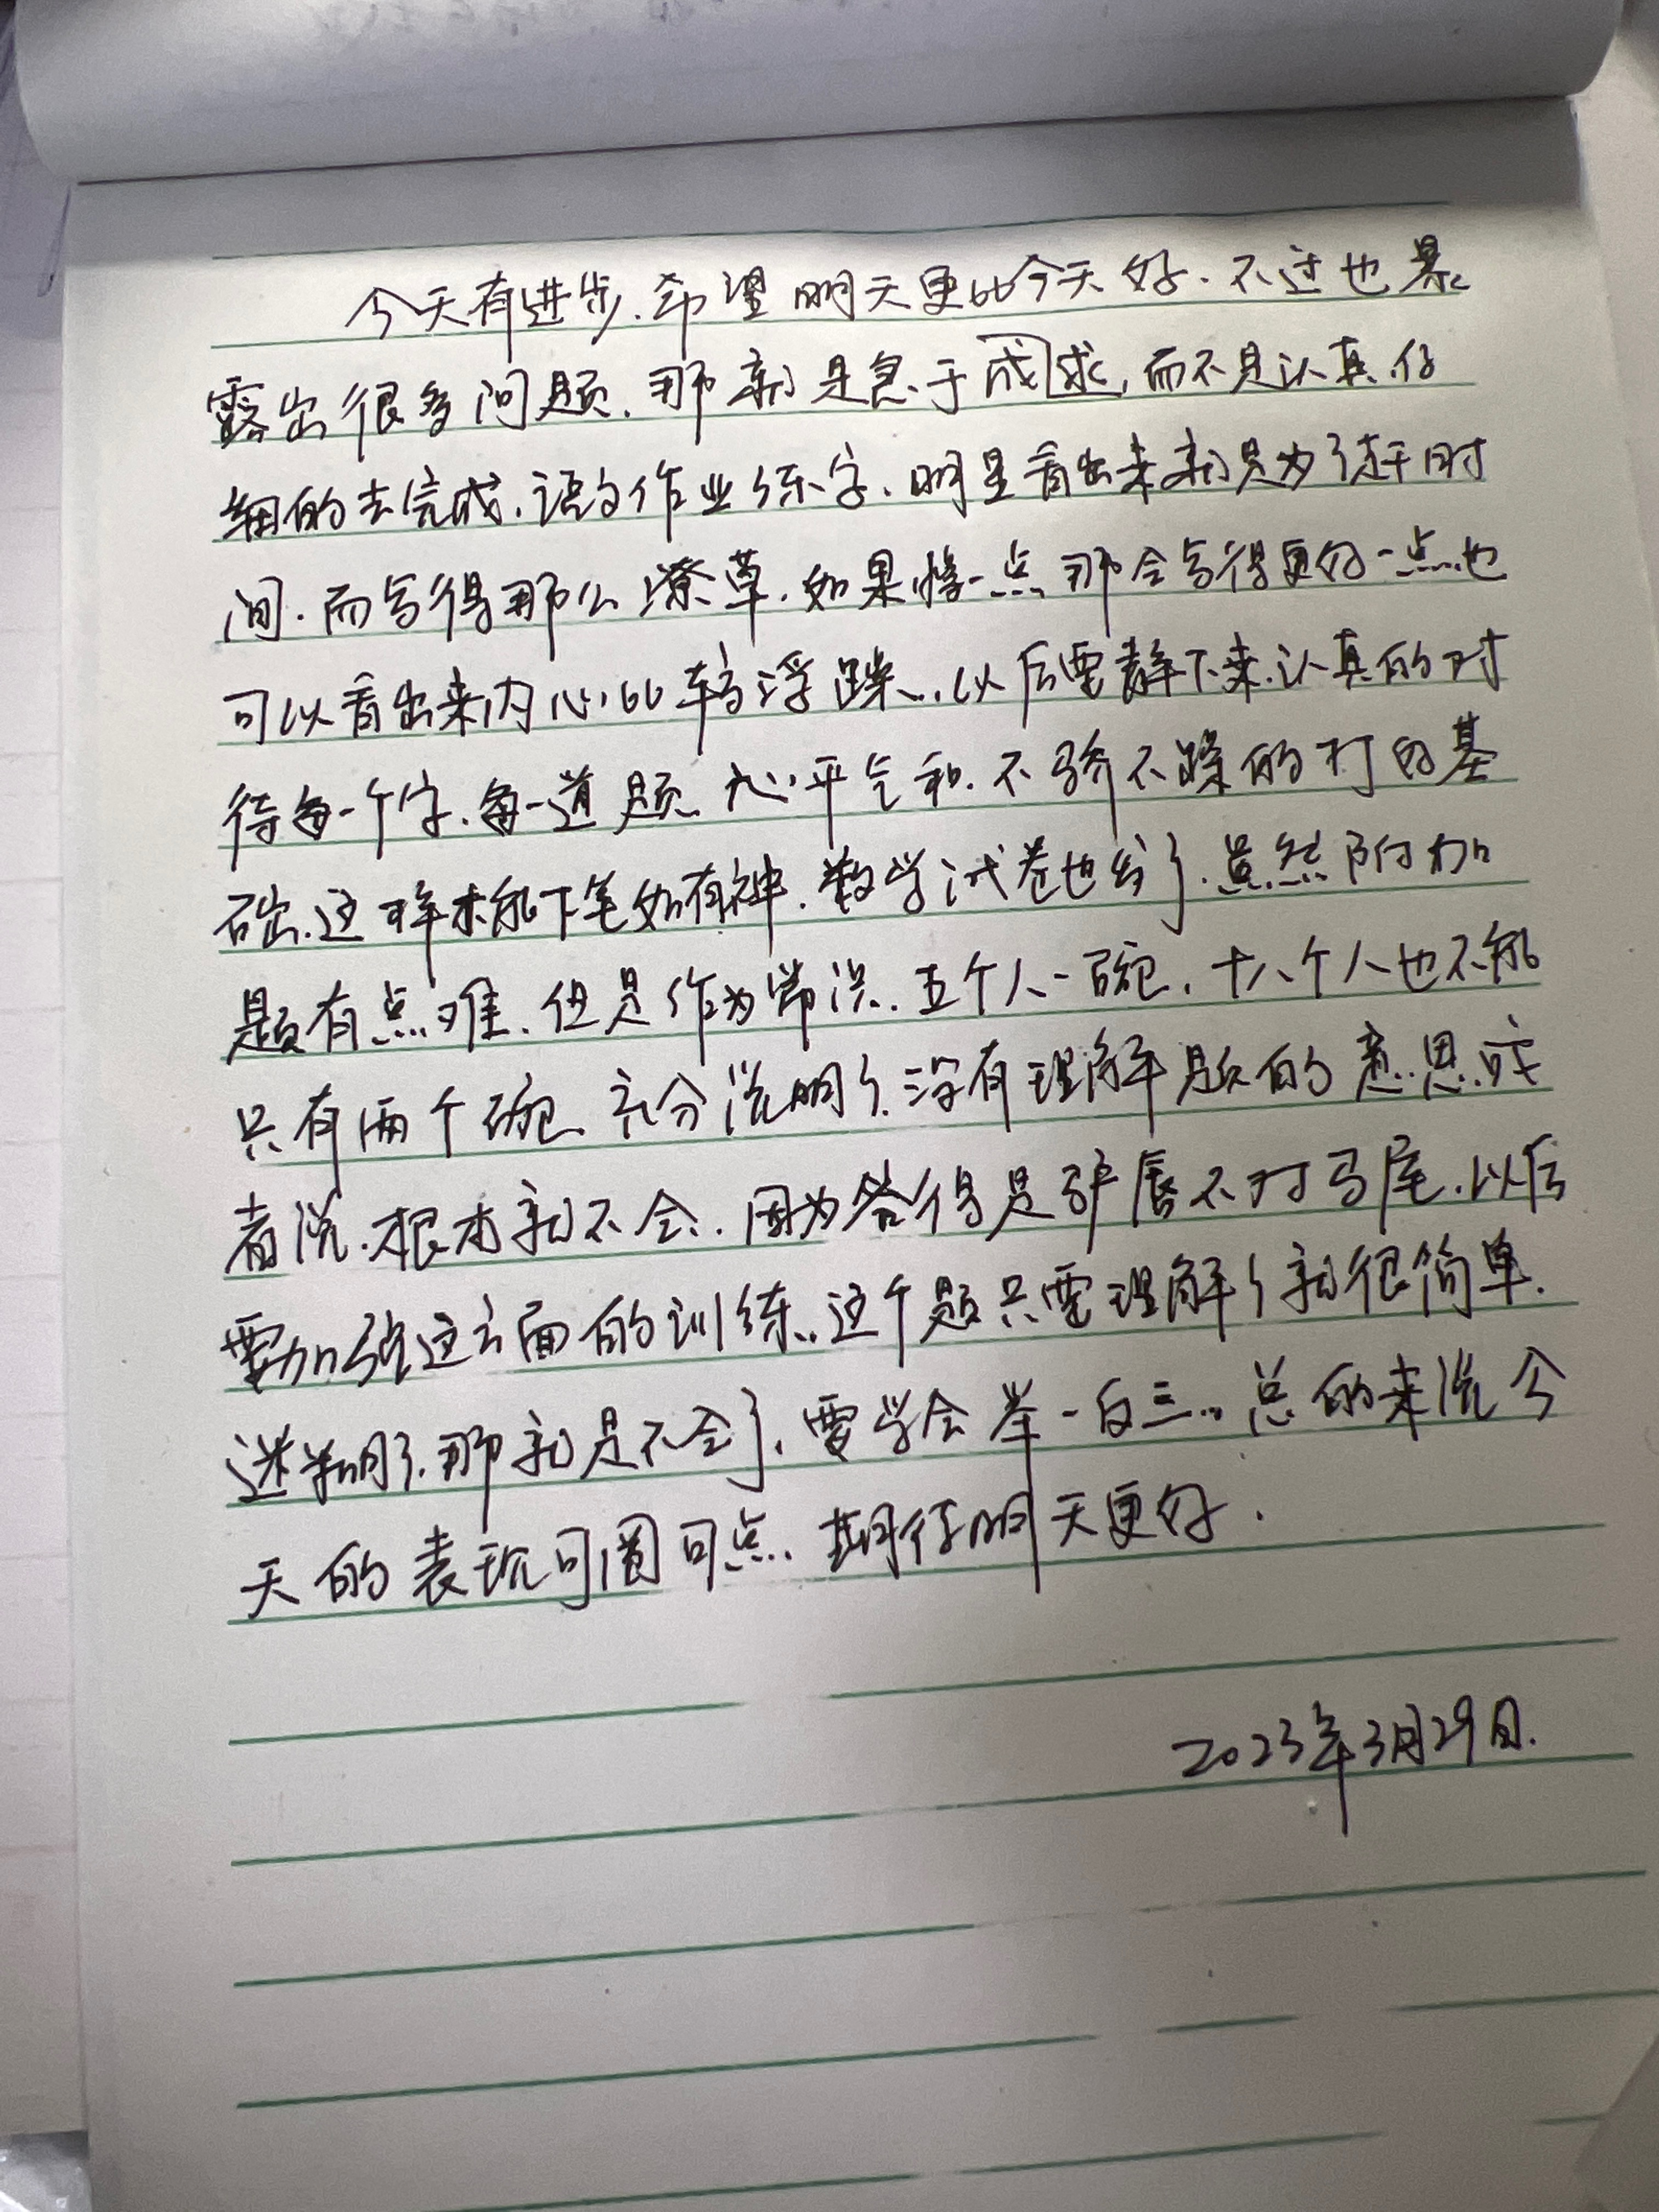 今天有进步.希望明天更比今天好.不过也暴
露出很多问题.那就是急于成求,而不是认真仔
细的去完成.语文作业练字.明显看出来就是为了赶时
间.而写得那么潦草.如果慢一点那会写得更好一点.也
可以看出来内心比较浮躁..以后要静下来.认真的对
待每一个字.每一道题.心平气和.不骄不躁的打好基
础.这样才能下笔如有神.数学试卷也发了.虽然附加
题有点难.但是作为常识.五个人一碗.十八个人也不能
只有两个碗.充分说明了没有理解题的意思.或
者说.根本就不会.因为答得是驴唇不对马尾.以后
要加强这方面的训练..这个题只要理解了就很简单.
迷糊了.那就是不会了.要学会举一反三..总的来说今
天的表现可圈可点.期待明天更好.
2023年3月29日.